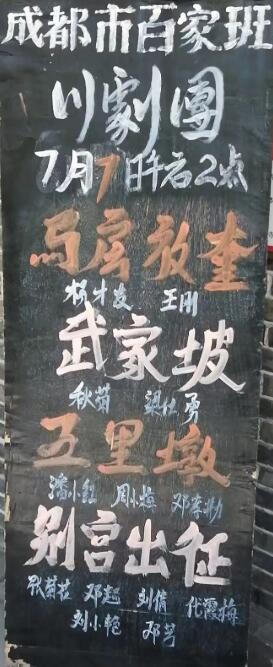 成都市百家班
川劇團
7月7日午后2点
马房放奎
杨才友 王刚
武家坡
秋菊 梁仕勇
五里墩
潘小红 周小燕 邓李勋
别宫出征
张菊花 邓超 刘倩 代霞梅
刘小艳 邓芳